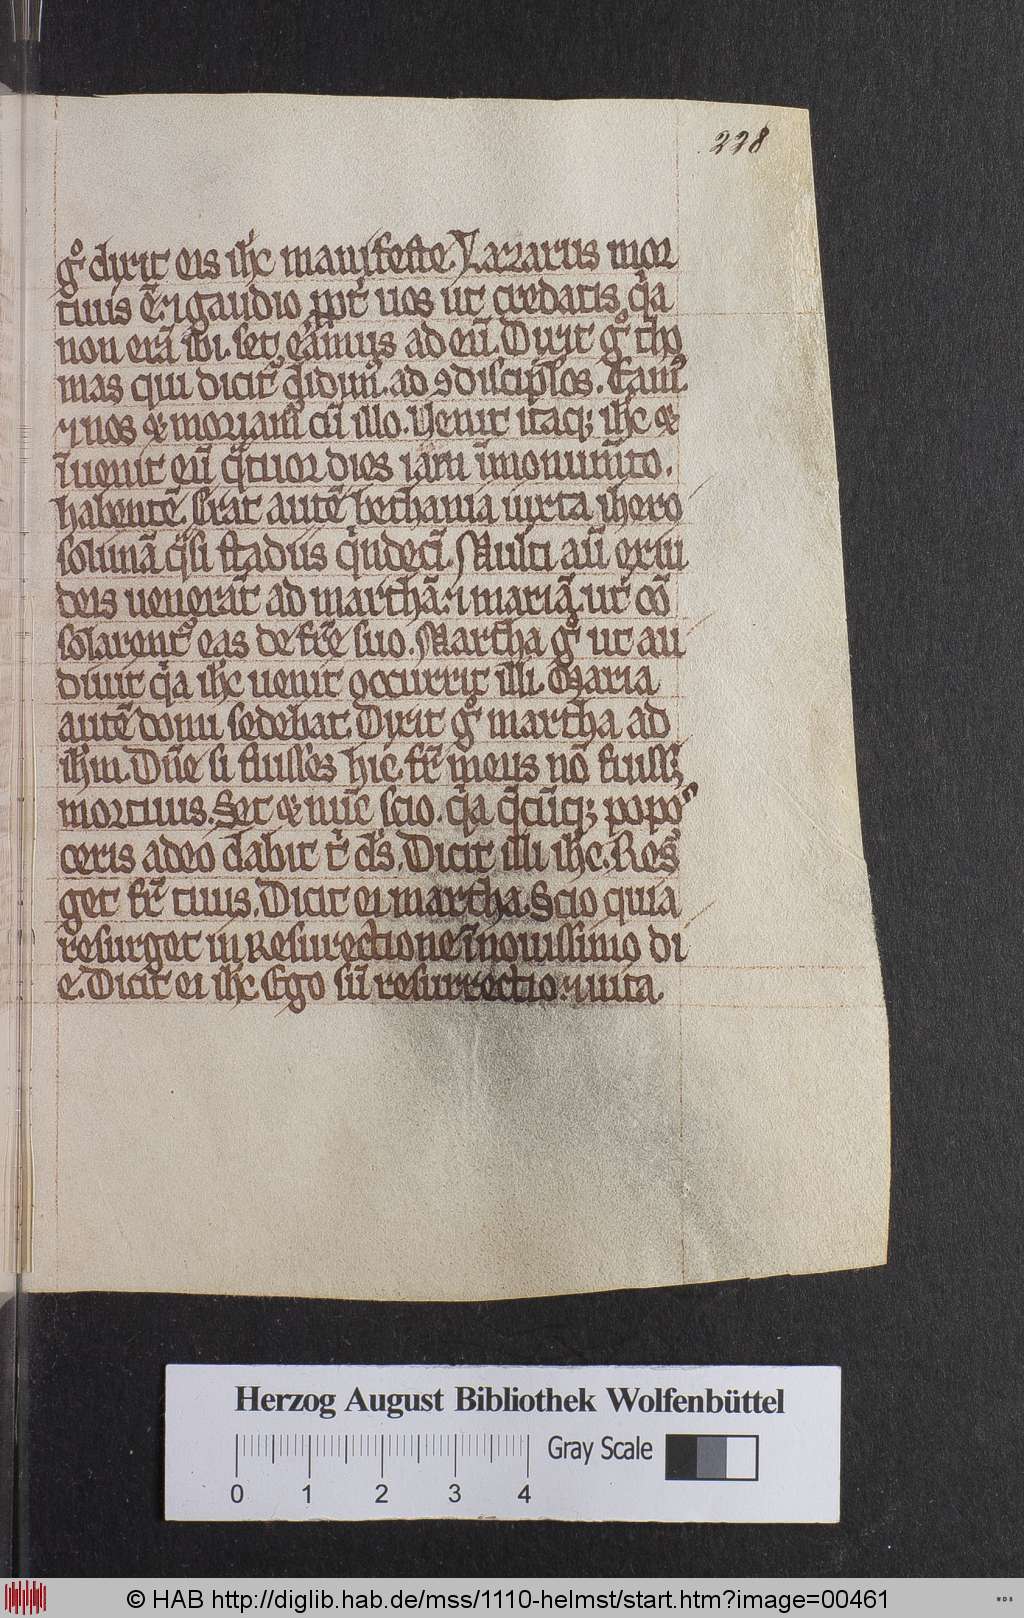 228
gͦ dixit eis ihc̄ manifeste. Lazarus mor
tuus ē. ⁊ gaudio ꝓpt̄ uos ut credatis. qͥa
non erā ibi. set eamus ad eū. Dixit gͦ tho
mas qui dicit᷑ didimꝰ. ad ꝯdiscip̄los. Eamꝰ
⁊ nos & moriamꝰ cū illo. Venit itaqꝫ ihc̄ &
īuenit eū qͣtuor dies iam ī monum̄to.
habentē. Erat autē bethania iuxta ihero
solimā qͣsi stadiis qͥndecī. Multi aū ex iu
deis uenerāt ad marthā. ⁊ mariā. ut cō
solarent᷑ eas de fr̄e suo. Martha gͦ ut au
diuit qͥa ihc̄ uenit occurrit illi. Maria
autē domi sedebat. Dixit gͦ martha ad
ihm̄. Dn̄e si fuisses hic. fr̄ meus nō fuissꝫ
mortuus. Set & nūc scio. qͥa qͣcūqꝫ popos
ceris a deo dabit tͥ ds̄. Dicit illi ihc̄. Resᷣ
get fr̄ tuus. Dicit ei martha. Scio quia
resurget in Resurectione ī nouissimo di
e. Dicit ei ihc̄. Ego sū resurrectio. ⁊ uita.
Herzog August Bibliothek Wolfenbüttel
Gray Scale
0 1 2 3 4
© HAB http://diglib.hab.de/mss/1110-helmst/start.htm?image=00461